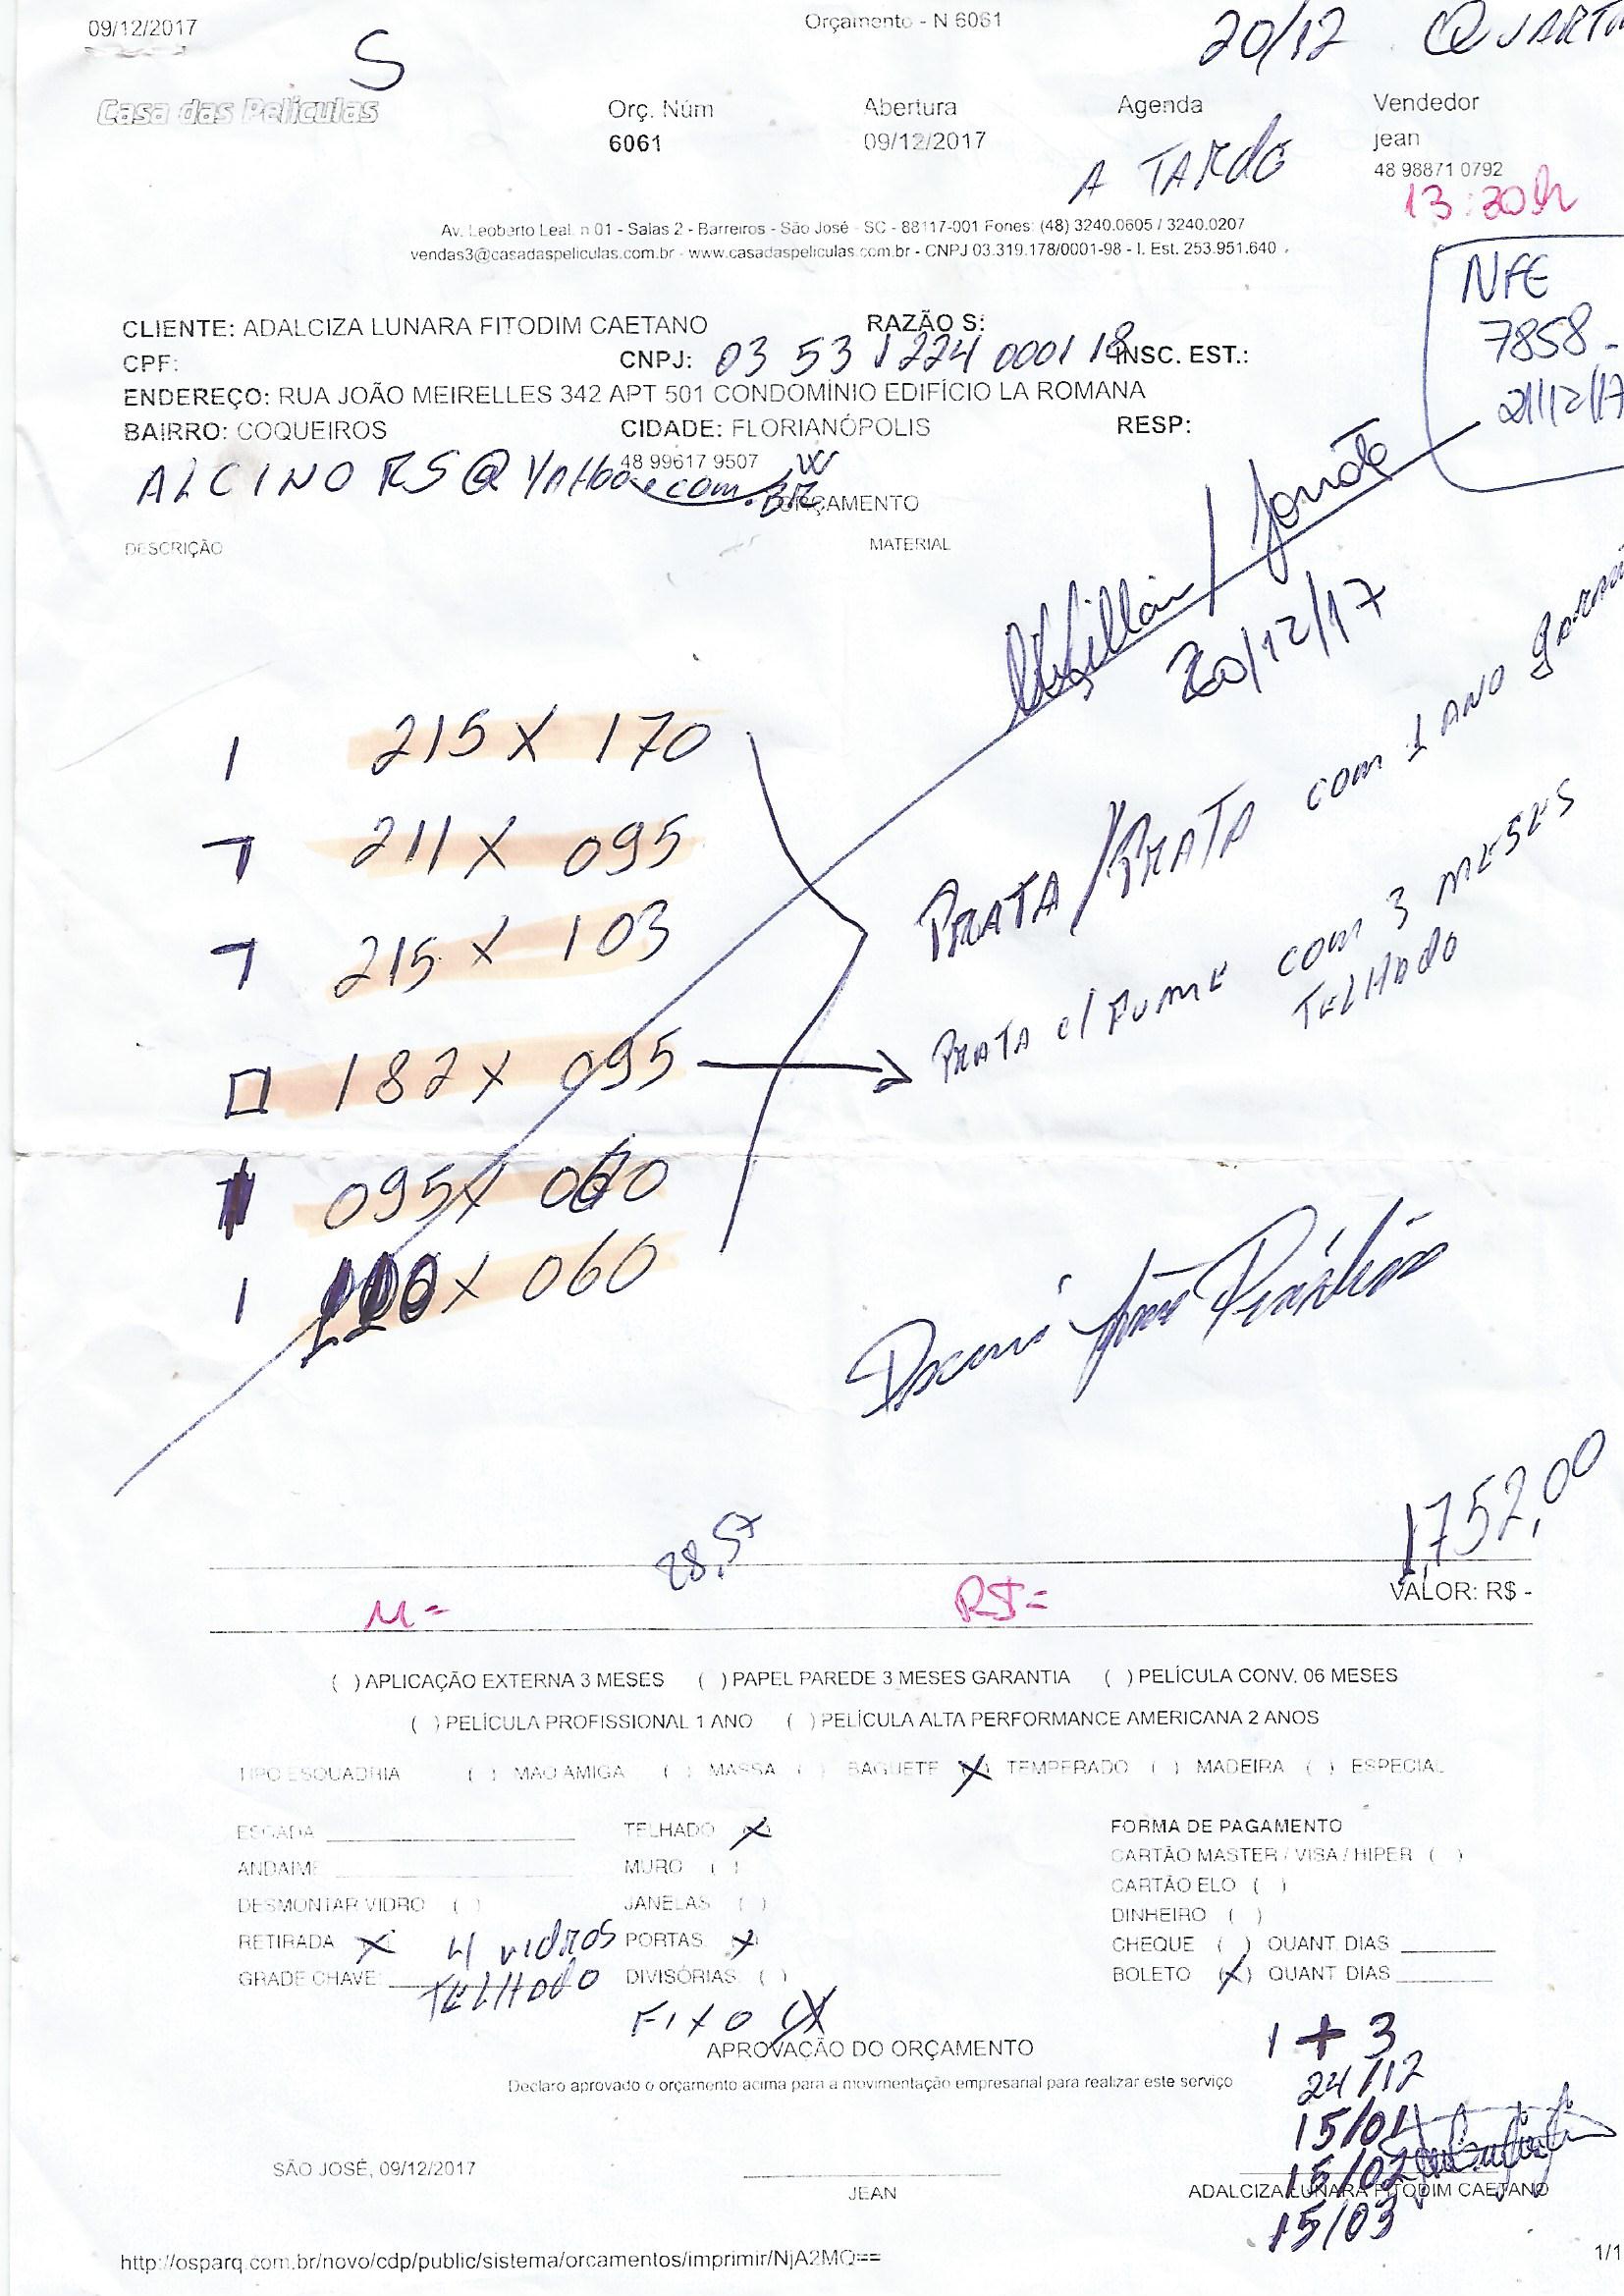 09/12/2017 Orçamento - N 6061 20/12 QUARTA
S
Casa das Películas Orç. Núm Abertura Agenda Vendedor
6061 09/12/2017 A TARDE jean
48 98871 0792
13:30h
Av. Leoberto Leal. n 01 - Salas 2 - Barreiros - São José - SC - 88117-001 Fones: (48) 3240.0605 / 3240.0207
vendas3@casadaspeliculas.com.br - www.casadaspeliculas.com.br - CNPJ 03.319.178/0001-98 - I. Est. 253.951.640
NFE
7858 -
21/12/17
CLIENTE: ADALCIZA LUNARA FITODIM CAETANO RAZÃO S:
CPF: CNPJ: 03 53 1 224 0001 18 INSC. EST.:
ENDEREÇO: RUA JOÃO MEIRELLES 342 APT 501 CONDOMÍNIO EDIFÍCIO LA ROMANA
BAIRRO: COQUEIROS CIDADE: FLORIANÓPOLIS RESP:
48 99617 9507
ALCINO RS@YAHOO.COM.BR
ORÇAMENTO
DESCRIÇÃO MATERIAL
20/12/17
1 215 X 170
211 X 095
215 X 103
182 X 095
095 X 060
1 110 X 060
PRATA/PRATA com 1 ANO
PRATA c/ FUME com 3 MESES
TELHADO
1.752,00
28,57
M= R$= VALOR: R$ -
( ) APLICAÇÃO EXTERNA 3 MESES ( ) PAPEL PAREDE 3 MESES GARANTIA ( ) PELÍCULA CONV. 06 MESES
( ) PELÍCULA PROFISSIONAL 1 ANO ( ) PELÍCULA ALTA PERFORMANCE AMERICANA 2 ANOS
TIPO ESQUADRIA ( ) MÃO AMIGA ( ) MASSA ( ) BAGUETE (X) TEMPERADO ( ) MADEIRA ( ) ESPECIAL
ESCADA TELHADO (X) FORMA DE PAGAMENTO
ANDAIME MURO ( ) CARTÃO MASTER / VISA / HIPER ( )
DESMONTAR VIDRO ( ) JANELAS ( ) CARTÃO ELO ( )
DINHEIRO ( )
RETIRADA (X) 4 vidros PORTAS (X) CHEQUE ( ) QUANT DIAS
GRADE CHAVE: TELHADO DIVISÓRIAS ( ) BOLETO (X) QUANT DIAS
FIXO (X)
APROVAÇÃO DO ORÇAMENTO
Declaro aprovado o orçamento acima para a movimentação empresarial para realizar este serviço
1 + 3
24/12
15/01
15/02
15/03
SÃO JOSÉ, 09/12/2017
JEAN ADALCIZA LUNARA FITODIM CAETANO
http://osparq.com.br/novo/cdp/public/sistema/orcamentos/imprimir/NjA2MQ== 1/1